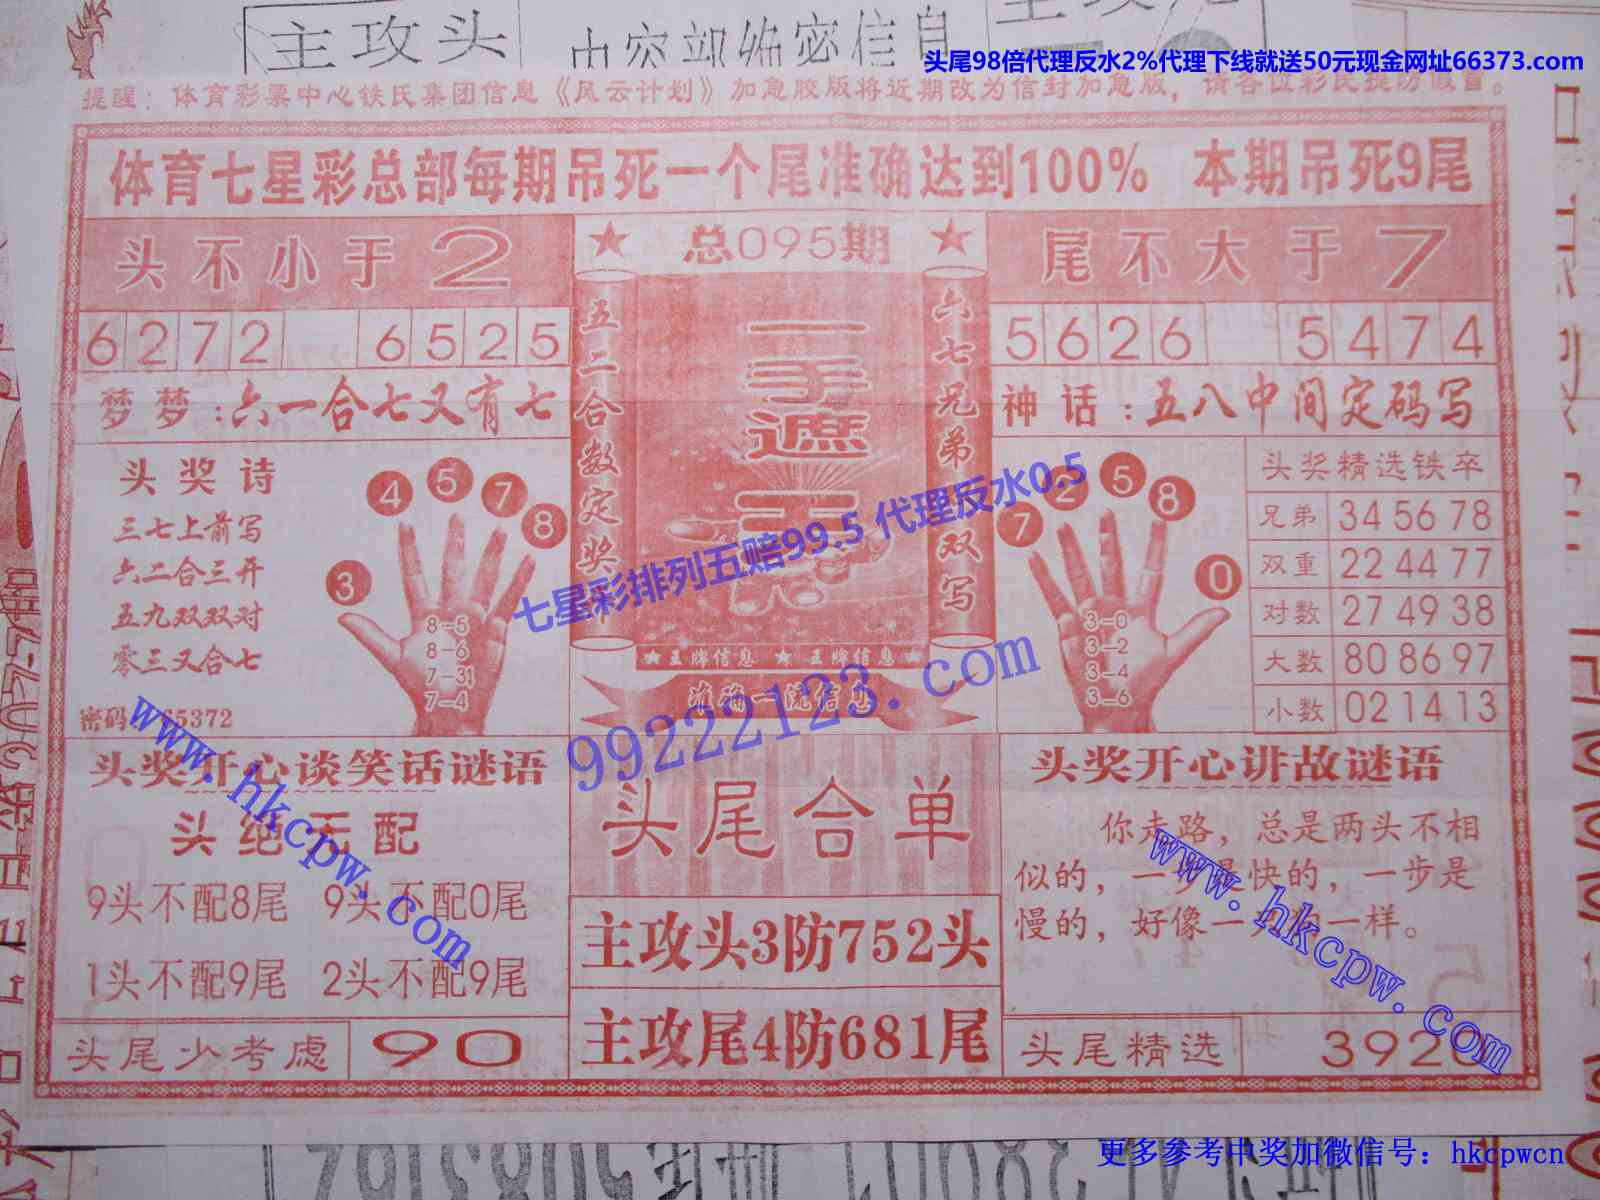 主攻头
头尾98倍代理反水2%代理下线就送50元现金网址66373.com
提醒：体育彩票中心铁氏集团信息《风云计划》加急胶版将近期改为信封加急版，请各位彩民提防假冒。
体育七星彩总部每期吊死一个尾准确达到100% 本期吊死9尾
头不小于2
总095期
尾不大于7
6272 6525
5626 5474
梦梦：六一合七又有七
神话：五八中间定码写
五二合数定奖
六七兄弟双写
一手遮天
头奖诗
三七上前写
六二合三开
五九双双对
零三又合七
4 5 7 8
3
8-5
8-6
7-31
7-4
7 2 5 8
0
3-0
3-2
3-4
3-6
头奖精选铁卒
兄弟 34 56 78
双重 22 44 77
对数 27 49 38
大数 80 86 97
小数 02 14 13
七星彩排列五赔99.5 代理反水0.5
★王牌信息 ★ 王牌信息★
准确一流信息
99222123.com
密码 65372
www.hkcpw.com
头奖开心谈笑话谜语
头绝无配
9头不配8尾 9头不配0尾
1头不配9尾 2头不配9尾
头尾少考虑 90
头尾合单
主攻头3防752头
主攻尾4防681尾
头奖开心讲故谜语
你走路，总是两头不相
似的，一步是快的，一步是
慢的，好像一样。
www.hkcpw.com
头尾精选 3920
更多参考中奖加微信号：hkcpwcn